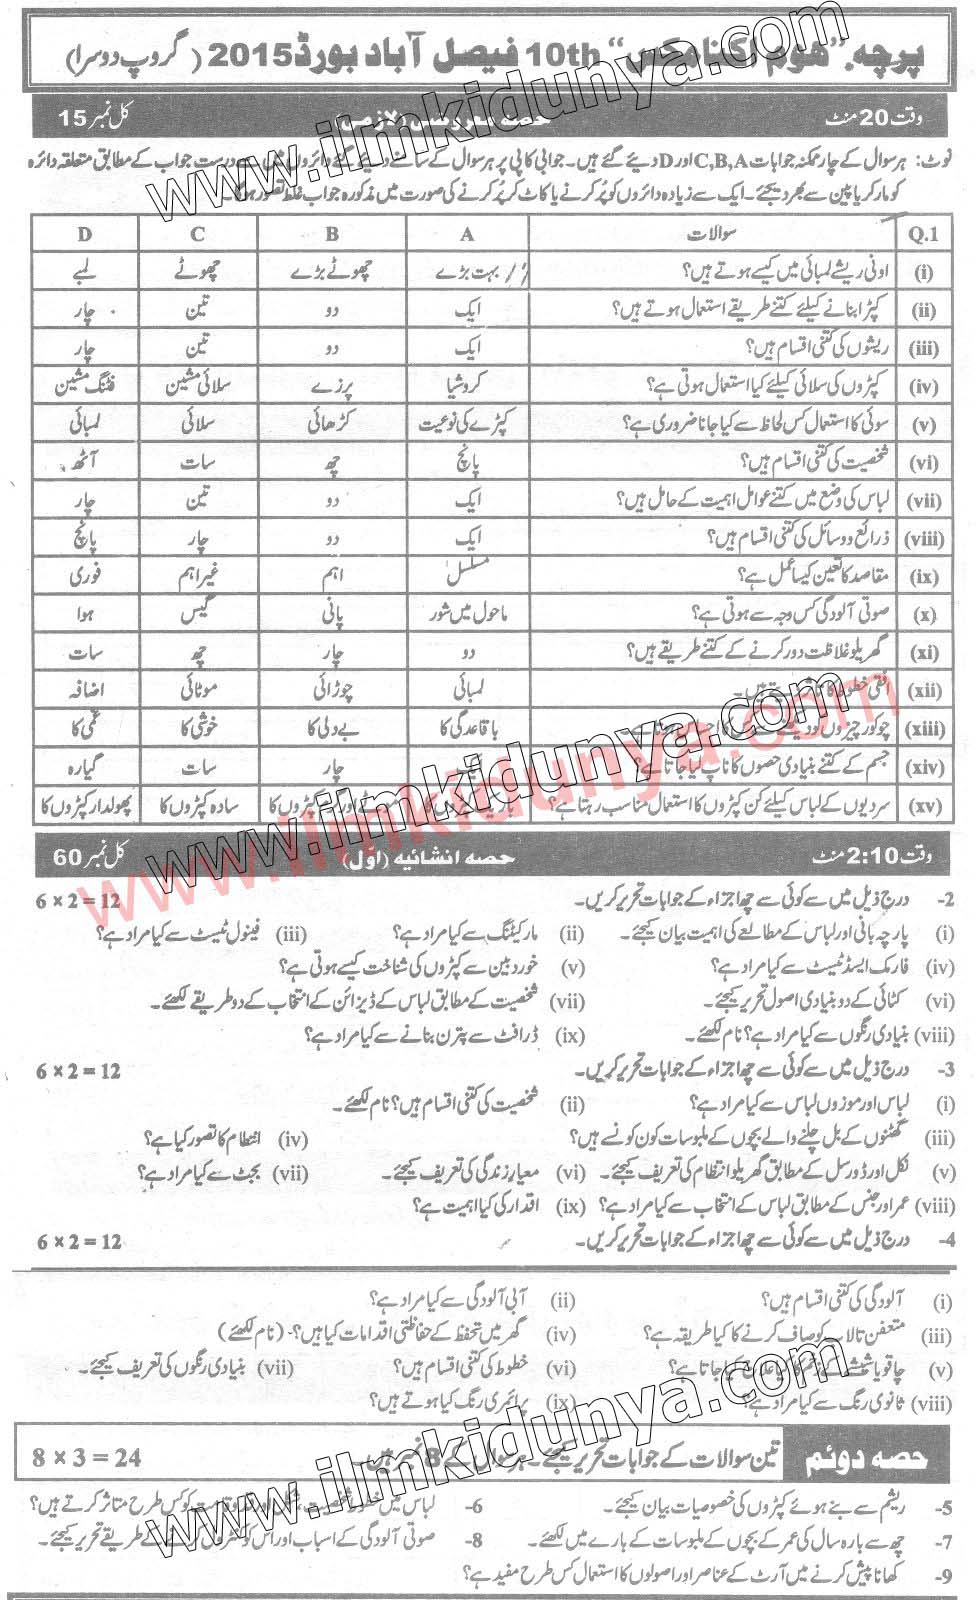 پرچہ: "ھوم اکنامکس" 10th فیصل آباد بورڈ 2015 (گروپ دوسرا)
وقت 20 منٹ حصہ معروضی (لازمی) کل نمبر 15
نوٹ: ہر سوال کے چار ممکنہ جوابات C,B,A اور D دیئے گئے ہیں۔ جوابی کاپی پر ہر سوال کے سامنے دیئے گئے دائروں میں سے درست جواب کے مطابق متعلقہ دائرہ
کو مارکر یا پین سے بھر دیجئے۔ ایک سے زیادہ دائروں کو پُر کرنے یا کاٹ کر پُر کرنے کی صورت میں مذکورہ جواب غلط تصور ہوگا۔
Q.1 سوالات A B C D
(i) اونی ریشے لمبائی میں کیسے ہوتے ہیں؟ بہت بڑے چھوٹے بڑے چھوٹے لمبے
(ii) کپڑا بنانے کیلئے کتنے طریقے استعمال ہوتے ہیں؟ ایک دو تین چار
(iii) ریشوں کی کتنی اقسام ہیں؟ ایک دو تین چار
(iv) کپڑوں کی سلائی کیلئے کیا استعمال ہوتی ہے؟ کروشیا پرزے سلائی مشین فٹنگ مشین
(v) سوئی کا استعمال کس لحاظ سے کیا جانا ضروری ہے؟ کپڑے کی نوعیت کڑھائی سلائی لمبائی
(vi) شخصیت کی کتنی اقسام ہیں؟ پانچ چھ سات آٹھ
(vii) لباس کی وضع میں کتنے عوامل اہمیت کے حامل ہیں؟ ایک دو تین چار
(viii) ذرائع و وسائل کی کتنی اقسام ہیں؟ ایک دو چار پانچ
(ix) مقاصد کا تعین کیسا عمل ہے؟ مسلسل اہم غیر اہم فوری
(x) صوتی آلودگی کس وجہ سے ہوتی ہے؟ ماحول میں شور پانی گیس ہوا
(xi) گھریلو غلاظت دور کرنے کے کتنے طریقے ہیں؟ دو چار چھ سات
(xii) افقی خطوط کا ہیں۔ لمبائی چوڑائی موٹائی اضافہ
(xiii) چوکور چیزوں کو باقاعدگی کا بے دلی کا خوشی کا غمی کا
(xiv) جسم کے کتنے بنیادی حصوں کا ناپ لیا جاتا ہے؟ چار سات گیارہ
(xv) سردیوں کے لباس کیلئے کن کپڑوں کا استعمال مناسب رہتا ہے؟ کپڑوں کا سادہ کپڑوں کا پھولدار کپڑوں کا
وقت 2:10 منٹ حصہ انشائیہ (اول) کل نمبر 60
2- درج ذیل میں سے کوئی سے چھ اجزاء کے جوابات تحریر کریں۔ 6 × 2 = 12
(i) پارچہ بانی اور لباس کے مطالعے کی اہمیت بیان کیجئے۔ (ii) مارکیٹنگ سے کیا مراد ہے؟ (iii) فینول ٹیسٹ سے کیا مراد ہے؟
(iv) فارمک ایسڈ ٹیسٹ سے کیا مراد ہے؟ (v) خوردبین سے کپڑوں کی شناخت کیسے ہوتی ہے؟
(vi) کٹائی کے دو بنیادی اصول تحریر کیجئے۔ (vii) شخصیت کے مطابق لباس کے ڈیزائن کے انتخاب کے دو طریقے لکھئے۔
(viii) بنیادی رنگوں سے کیا مراد ہے؟ نام لکھئے۔ (ix) ڈرافٹ سے پترن بنانے سے کیا مراد ہے؟
3- درج ذیل میں سے کوئی سے چھ اجزاء کے جوابات تحریر کریں۔ 6 × 2 = 12
(i) لباس اور موزوں لباس سے کیا مراد ہے؟ (ii) شخصیت کی کتنی اقسام ہیں؟ نام لکھئے۔
(iii) گھٹنوں کے بل چلنے والے بچوں کے ملبوسات کون کونسے ہیں؟ (iv) انتظام کا تصور کیا ہے؟
(v) نکل اور ڈورسل کے مطابق گھریلو انتظام کی تعریف کیجئے۔ (vi) معیار زندگی کی تعریف کیجئے۔ (vii) بجٹ سے کیا مراد ہے؟
(viii) عمر اور جنس کے مطابق لباس کے انتخاب سے کیا مراد ہے؟ (ix) اقدار کی کیا اہمیت ہے؟
4- درج ذیل میں سے کوئی سے چھ اجزاء کے جوابات تحریر کریں۔ 6 × 2 = 12
(i) آلودگی کی کتنی اقسام ہیں؟ (ii) آبی آلودگی سے کیا مراد ہے؟
(iii) متعفن تالاب کو صاف کرنے کا کیا طریقہ ہے؟ (iv) گھر میں تحفظ کے حفاظتی اقدامات کیا ہیں؟ (نام لکھئے)
(v) چاقو یا شیشے کے زخم کا کیا علاج کیا جاتا ہے؟ (vi) خطوط کی کتنی اقسام ہیں؟ (vii) بنیادی رنگوں کی تعریف کیجئے۔
(viii) ثانوی رنگ سے کیا مراد ہے؟ (ix) پرائمری رنگ کیا ہوتے ہیں؟
حصہ دوئم تین سوالات کے جوابات تحریر کیجئے۔ ہر سوال کے 8 نمبر ہیں۔ 8 × 3 = 24
5- ریشم سے بنے ہوئے کپڑوں کی خصوصیات بیان کیجئے۔ 6- لباس میں خطوط کو کس طرح متاثر کرتے ہیں؟
7- چھ سے بارہ سال کی عمر کے بچوں کے ملبوسات کے بارے میں لکھئے۔ 8- صوتی آلودگی کے اسباب اور اس کو کنٹرول کرنے کے طریقے تحریر کیجئے۔
9- کھانا پیش کرنے میں آرٹ کے عناصر اور اصولوں کا استعمال کس طرح مفید ہے؟
www.ilmkidunya.com
www.ilmkidunya.com
www.ilmkidunya.com
www.ilmkidunya.com